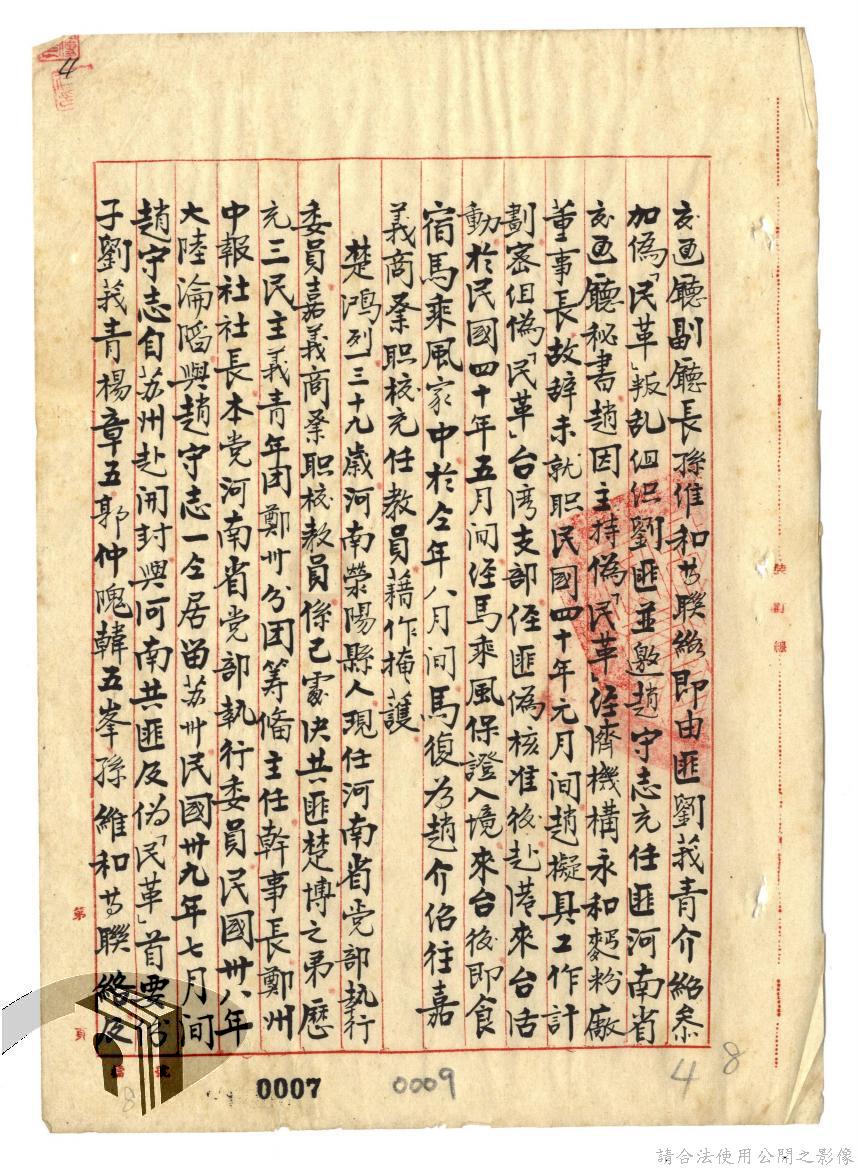 交通廳副廳長孫維和等聯絡即由匪劉莪青介紹參
加偽「民革」叛乱组织劉匪並邀趙守志充任匪河南省
交通廳秘書趙因主持偽「民革」经濟機構永和麵粉廠
董事長故辞未就职民國四十年元月间趙擬具工作計
劃密组偽「民革」台湾支部经匪偽核准後赴港來台活
動於民國四十年五月间经馬乘風保證入境來台後即食
宿馬乘風家中於仝年八月间馬復為趙介绍往嘉
義商業职校充任教員藉作掩護
楚鴻烈一三十九歲河南滎陽縣人現任河南省党部執行
委員嘉義商業职校教員係已處决共匪楚博之弟歷
充三民主義青年团鄭州分团籌俻主任幹事長鄭州
中報社社長本党河南省党部執行委員民國卅八年
大陸淪陷與趙守志一仝居留苏州民國卅九年七月间
趙守志自苏州赴开封與河南共匪及偽「民革」首要份
子劉莪青楊章五郭仲隗韓五峯孫維和等聯絡及
裝訂線
第 頁
4
0007
0009
4
8
8
請合法使用公開之影像